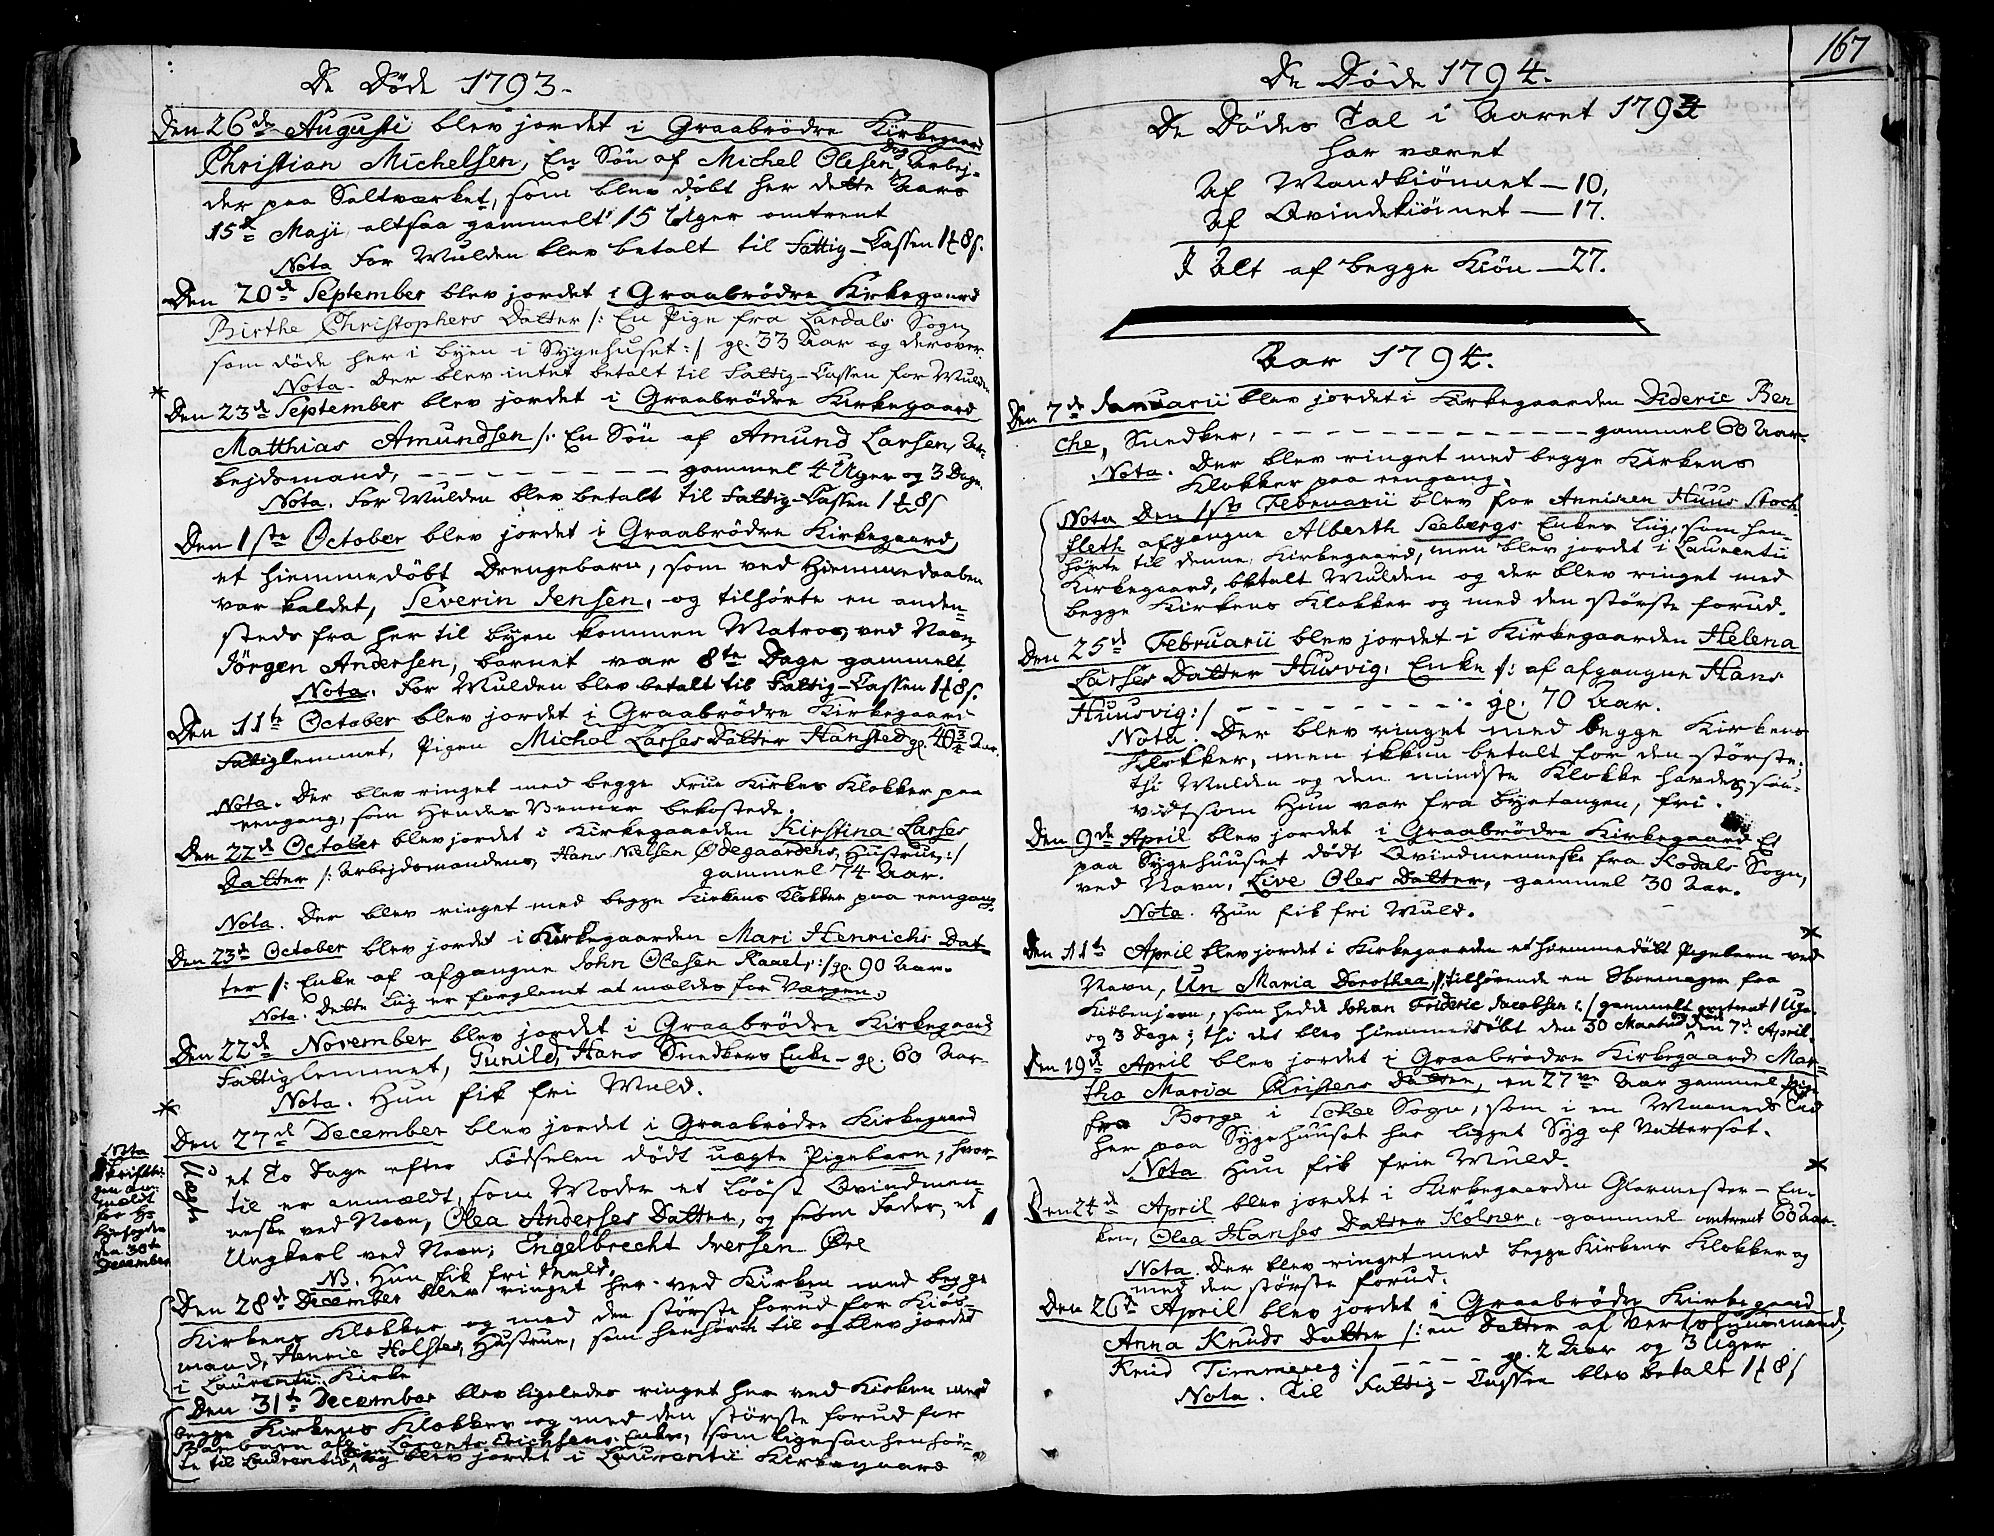 De Døde 1793.
Den 26de Augusti blev jordet i Graabrødre Kirkegaard
Christian Michelsen, En Søn af Michel Olesen Arbej-
der paa Saltværket, som blev døbt her dette Aars
15de Maji altsaa gammelt 15 Uger omtrent
Nota For Mulden blev betalt til Fattig-Cassen 1 ₰ 8 s.
Den 20de September blev jordet i Graabrødre Kirkegaard
Birthe Christophers Datter /: En Pige fra Lardals Sogn
som døde her i byen i Sygehuset :/ gl. 33 Aar og derover.
Nota. Der blev intet betalt til Fattig-Cassen for Mulden
Den 23de September blev jordet i Graabrødre Kirkegaard
Matthias Amundsen /: En Søn af Amund Larsen, Ar-
bejdsmand, - - - gammel 4 Uger og 3 Dage.
Nota. For Mulden blev betalt til Fattig-Cassen 1 ₰ 8 s
Den 1ste October blev jordet i Graabrødre Kirkegaard
et hiemmedøbt Drengebarn, som ved Hiemmedaaben
var kaldet, Severin Jensen, og tilhørte en anden-
steds fra her til byen kommen Matros, ved Navn
Jörgen Andersen, barnet var 8te Dage gammelt
Nota. For Mulden blev betalt til Fattig-Cassen 1 ₰ 8 s.
Den 11te October blev jordet i Graabrødre Kirkegaard
Fattiglemmet, Pigen Michol Larses Datter Hansted gl. 40 3/4 Aar.
Nota. Der blev ringet med begge Frue Kirkes Klokker paa
eengang, som Hendes Venner bekostede.
Den 22de October blev jordet i Kirkegaarden Kirstina Larses
Datter /: Arbejdsmandens, Hans Nielsen Ödegaardens, Hustrue, :/
gammel 74 Aar.
Nota. Der blev ringet med begge Kirkens Klokker paa eengang.
Den 23de October blev jordet i Kirkegaarden Mari Henrichs Dat-
ter /: Enke af afgangne John Olesen Raael, :/ gl. 90 Aar.
Nota. Dette Lüg er forglemt at meldes for Værgen.
Den 22de November blev jordet i Graabrødre Kirkegaard
Fattiglemmet, Gunild, Hans Snedkers Enke - gl. 60 Aar.
Nota. Hun fik fri Muld.
Den 27de December blev jordet i Graabrødre Kirkegaard
Uægte
et To Dage efter Fødselen dødt uægte Pigebarn, hvor-
til er anmældt, som Moder et Lööst Qvindmen-
neske ved Navn, Olea Anderses Datter, og som Fader, et
Ungkarl ved Navn, Engelbrecht Iversen Øre
NB. Hun fik fri Muld.
Nota
Skriftli-
gen an-
meldt
for Hr
den 30te
December
Den 28de December blev ringet her ved Kirken med begge
Kirkens Klokker og med den største forud for Kiøb-
mand, Henric Holsts, Hustrue, som henhørte til og blev jordet
i Laurentii Kirke
Den 31te December blev ligeledes ringet her ved Kirken med
begge Kirkens Klokker og med den største forud for
Lorents Erichsens Enke, som ligesaa henhør-
te til Laurentii og blev jordet i Laurentii Kirkegaard
167
De Døde 1794.
De Dødes Tal i Aaret 1793
har været
Af Mandkiønnet — 10.
Af Qvindekiønnet — 17.
I Alt af begge Kiøn — 27.
Aar 1794.
Den 7de Januarii blev jordet i Kirkegaarden Dideric Ben
che, Snedker, - - - gammel 60 Aar.
Nota. Der blev ringet med begge Kirkens
Klokker paa eengang.
Nota Den 1ste Februarii blev for Annisen Huus Stoch-
fleth afgangne Alberth Seebergs Enkes Lüg, som hen-
hørte til denne Kirkegaard, men blev jordet i Laurentii
Kirkegaard, betalt Mulden og der blev ringet med
begge Kirkens Klokker og med den største forud.
Den 25de Februarii blev jordet i Kirkegaarden Helena
Larses Datter Husvig, Enke /: af afgangne Hans
Huusvig :/ - - - gl. 70 Aar.
Nota. Der blev ringet med begge Kirkens
Klokker, men ikkun betalt for den største.
thi Mulden og den mindste Klokke havdes, saa-
vidt som Hun var fra Byetangen, fri.
Den 9de April blev jordet i Graabrødre Kirkegaard Et
paa Sygehuuset dødt Qvindmenneske fra Kodals Sogn,
ved Navn, Live Oles Datter, gammel 30 Aar.
Nota. Hun fik fri Muld.
Den 11te April blev jordet i Kirkegaarden et hiemmedøbt Pigebarn ved
Navn, Un Maria Dorothea, /: tilhørende en Skoemager fra
Kiöbenhavn, som hedde Johan Frideric Jacobsen :/ gammelt omtrent 1 Uge
og 3 Dage; thi det blev hiemmedøbt den 30 Martii den 7de April.
Den 19de April blev jordet i Graabrødre Kirkegaard Mar-
tha Maria Christens Datter, en 27ve Aar gammel Pige
fra Borge i Sogn, som i en Maaneds Tid
her paa Sygehuuset har ligget Syg af Vattersot.
Nota Hun fik frie Muld.
Den 24de April blev jordet i Kirkegaarden Glarmester-En-
ken, Olea Hanses Datter Kolner, gammel omtrent 60 Aar.
Nota. Der blev ringet med begge Kirkens Klokker og
med den største forud.
Den 26te April blev jordet i Graabrødre Kirkegaard
Anna Knuds Datter /: en Datter af Vertshuusmand,
Knud Timmereg :/ - - - gl. 2 Aar og 3 Uger
Nota. Til Fattig-Cassen blev betalt 1 ₰ 8 s